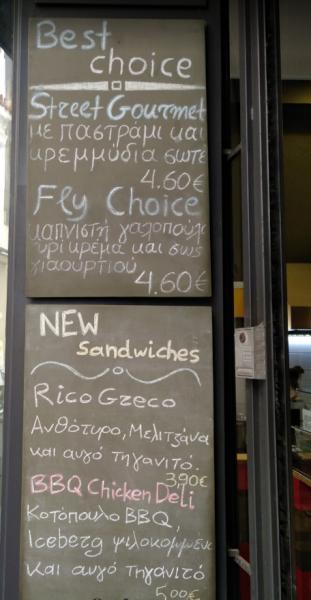 Best
choice
Street Gourmet
με παστράμι και
κρεμμύδια σωτέ
4.60€
Fly Choice
καπνιστή γαλοπούλα
τυρί κρέμα και σως
γιαουρτιού
4.60€
NEW
Sandwiches
Rico Greco
Ανθότυρο, Μελιτζάνα
και αυγό τηγανιτό.
3.90€
BBQ Chicken Deli
Κοτόπουλο BBQ,
Iceberg ψιλοκομμένο
και αυγό τηγανιτό
5.00€